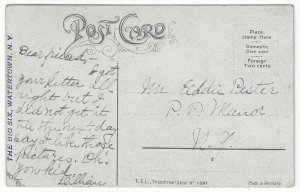 POST CARD
Place
Stamp Here
Domestic
One cent
Foreign
Two cents
THE BIG SIX, WATERTOWN, N.Y.
Dear friend:-
I got
your letter all
right but I
did not get it
till the next day
say I like those
pictures. Oh!
you kid
Lillian
Mr. Eddie Pester
P. P. Manor
N. Y.
Made in Germany